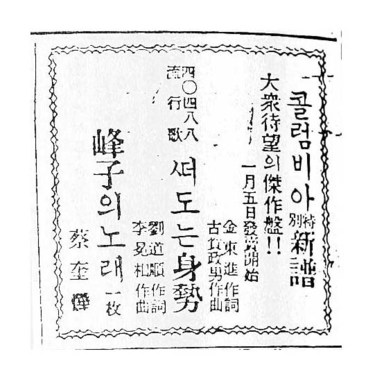 콜럼비아特別新譜
大衆待望의傑作盤!!
一月五日發賣開始
金東進作詞
古賀政男作曲
四〇四八八
流行歌
ᄯᅥ도는身勢
劉道順作詞
李冕相作曲
峰子의노래 一枚
蔡奎燁